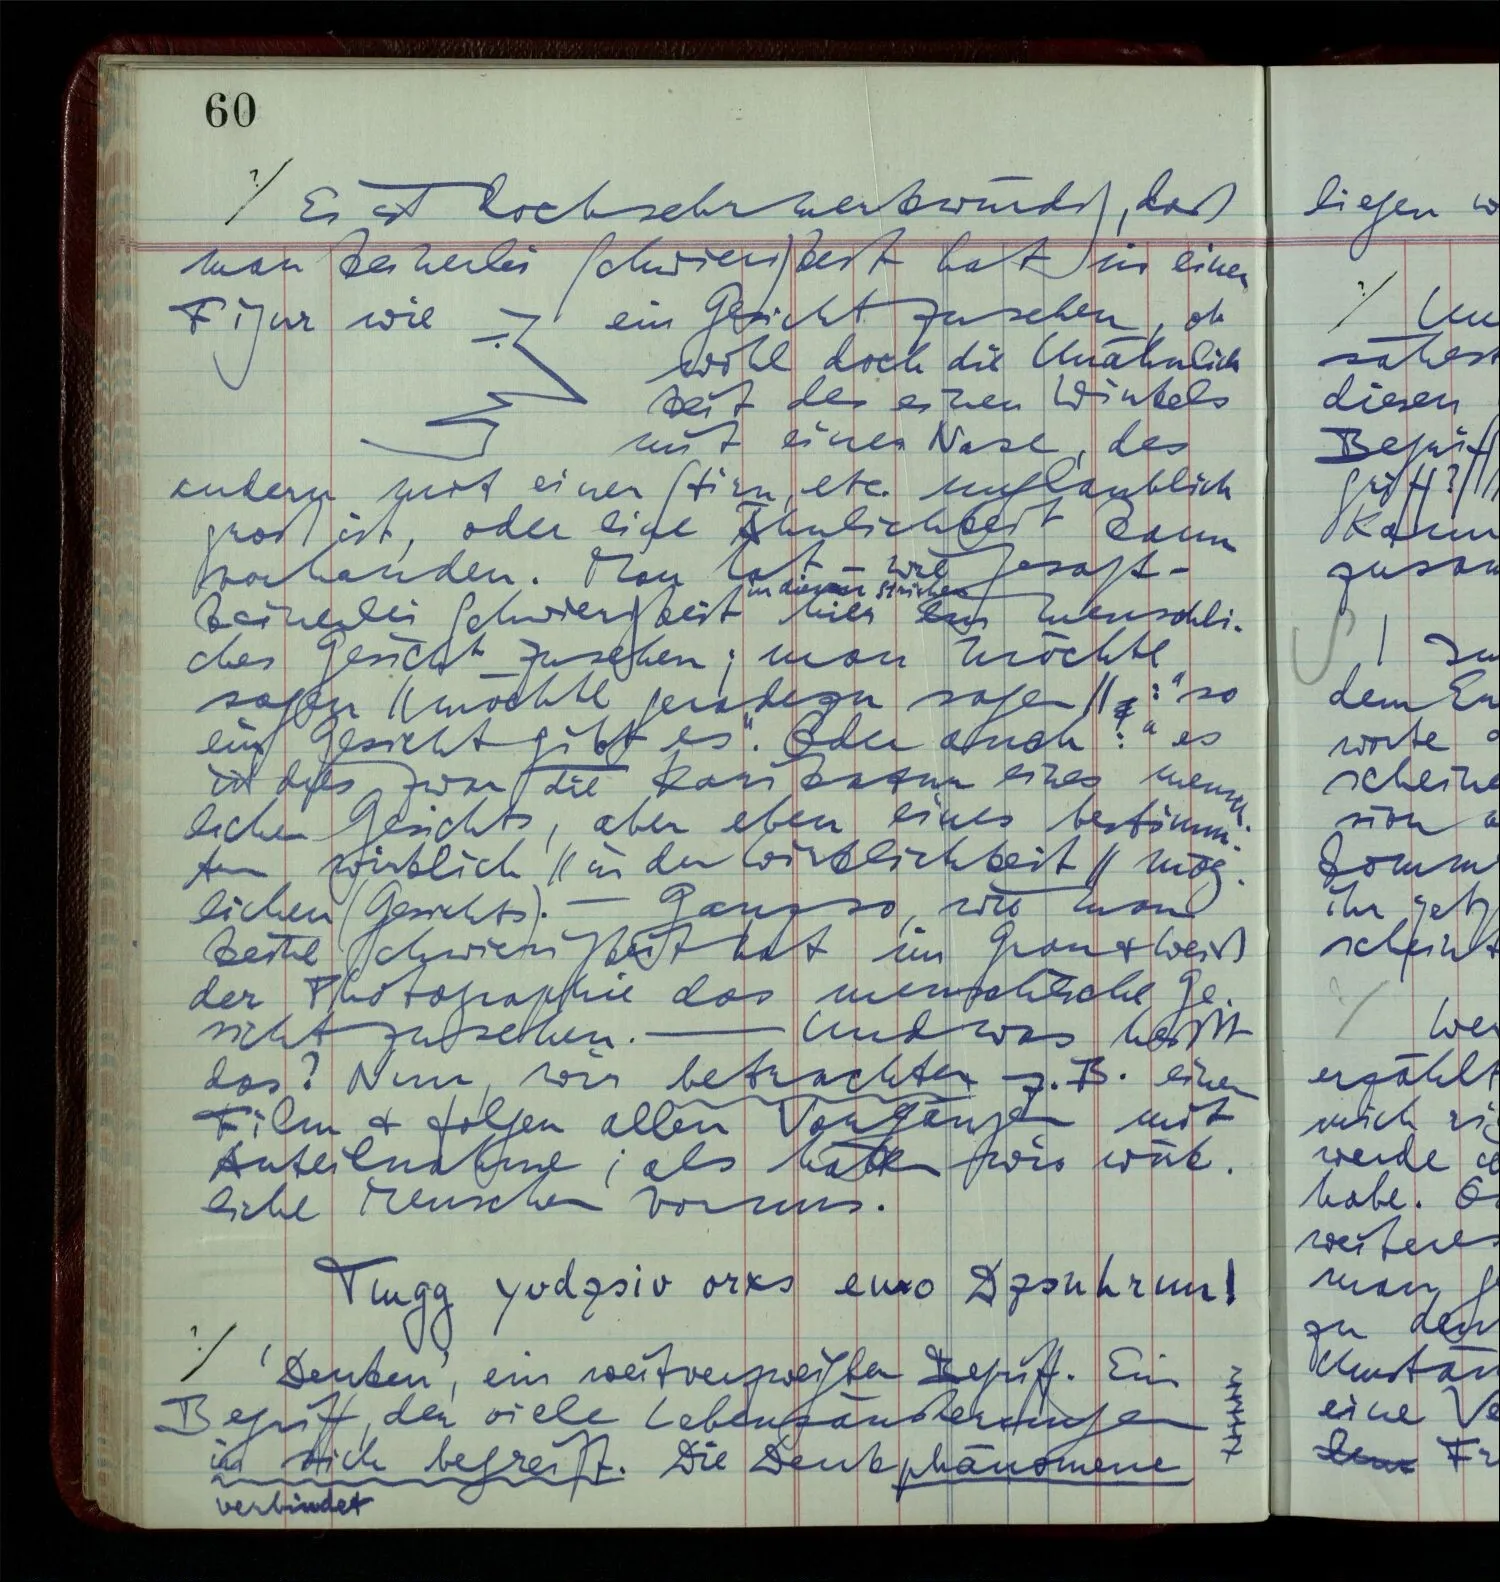 60
?/ Es ist doch sehr merkwürdig, daß
man keinerlei Schwierigkeit hat in einer
Figur wie ein Gesicht zu sehen, ob
wohl doch die Unähnlich
keit des einen Winkels
mit einer Nase, des
andern mit einer Stirn, etc. unglaublich
groß ist, oder eine Ähnlichkeit kaum
vorhanden. Man hat – wie gesagt –
in diesen Strichen
keinerlei Schwierigkeit hier ein menschli-
ches Gesicht zu sehen; man möchte
sagen // möchte geradezu sagen //: "so
ein Gesicht gibt es". Oder auch: "es
ist dies zwar die Karikatur eines mensch-
lichen Gesichts, aber eben eines bestimm-
ten wirklich // in der Wirklichkeit // mög-
lichen (Gesichts). — Ganz so, wie man
keine Schwierigkeit hat im Grau & Weiß
der Photographie das menschliche Ge-
sicht zu sehen. — Und was heißt
das? Nun, wir betrachten z.B. einen
Film & folgen allen Vorgängen mit
Anteilnahme; als hätten wir wirk-
liche Menschen vor uns.
?/ 'Denken', ein weitverzweigter Begriff. Ein
Begriff, der viele Lebensäußerungen
in sich begreift. Die Denkphänomene
verbindet
liegen
?/
diesen
Begriff
! Zu
worte
ihr jetzt
scheint
erzählt
mich
werde
habe.
weiteres
man
zu
eine